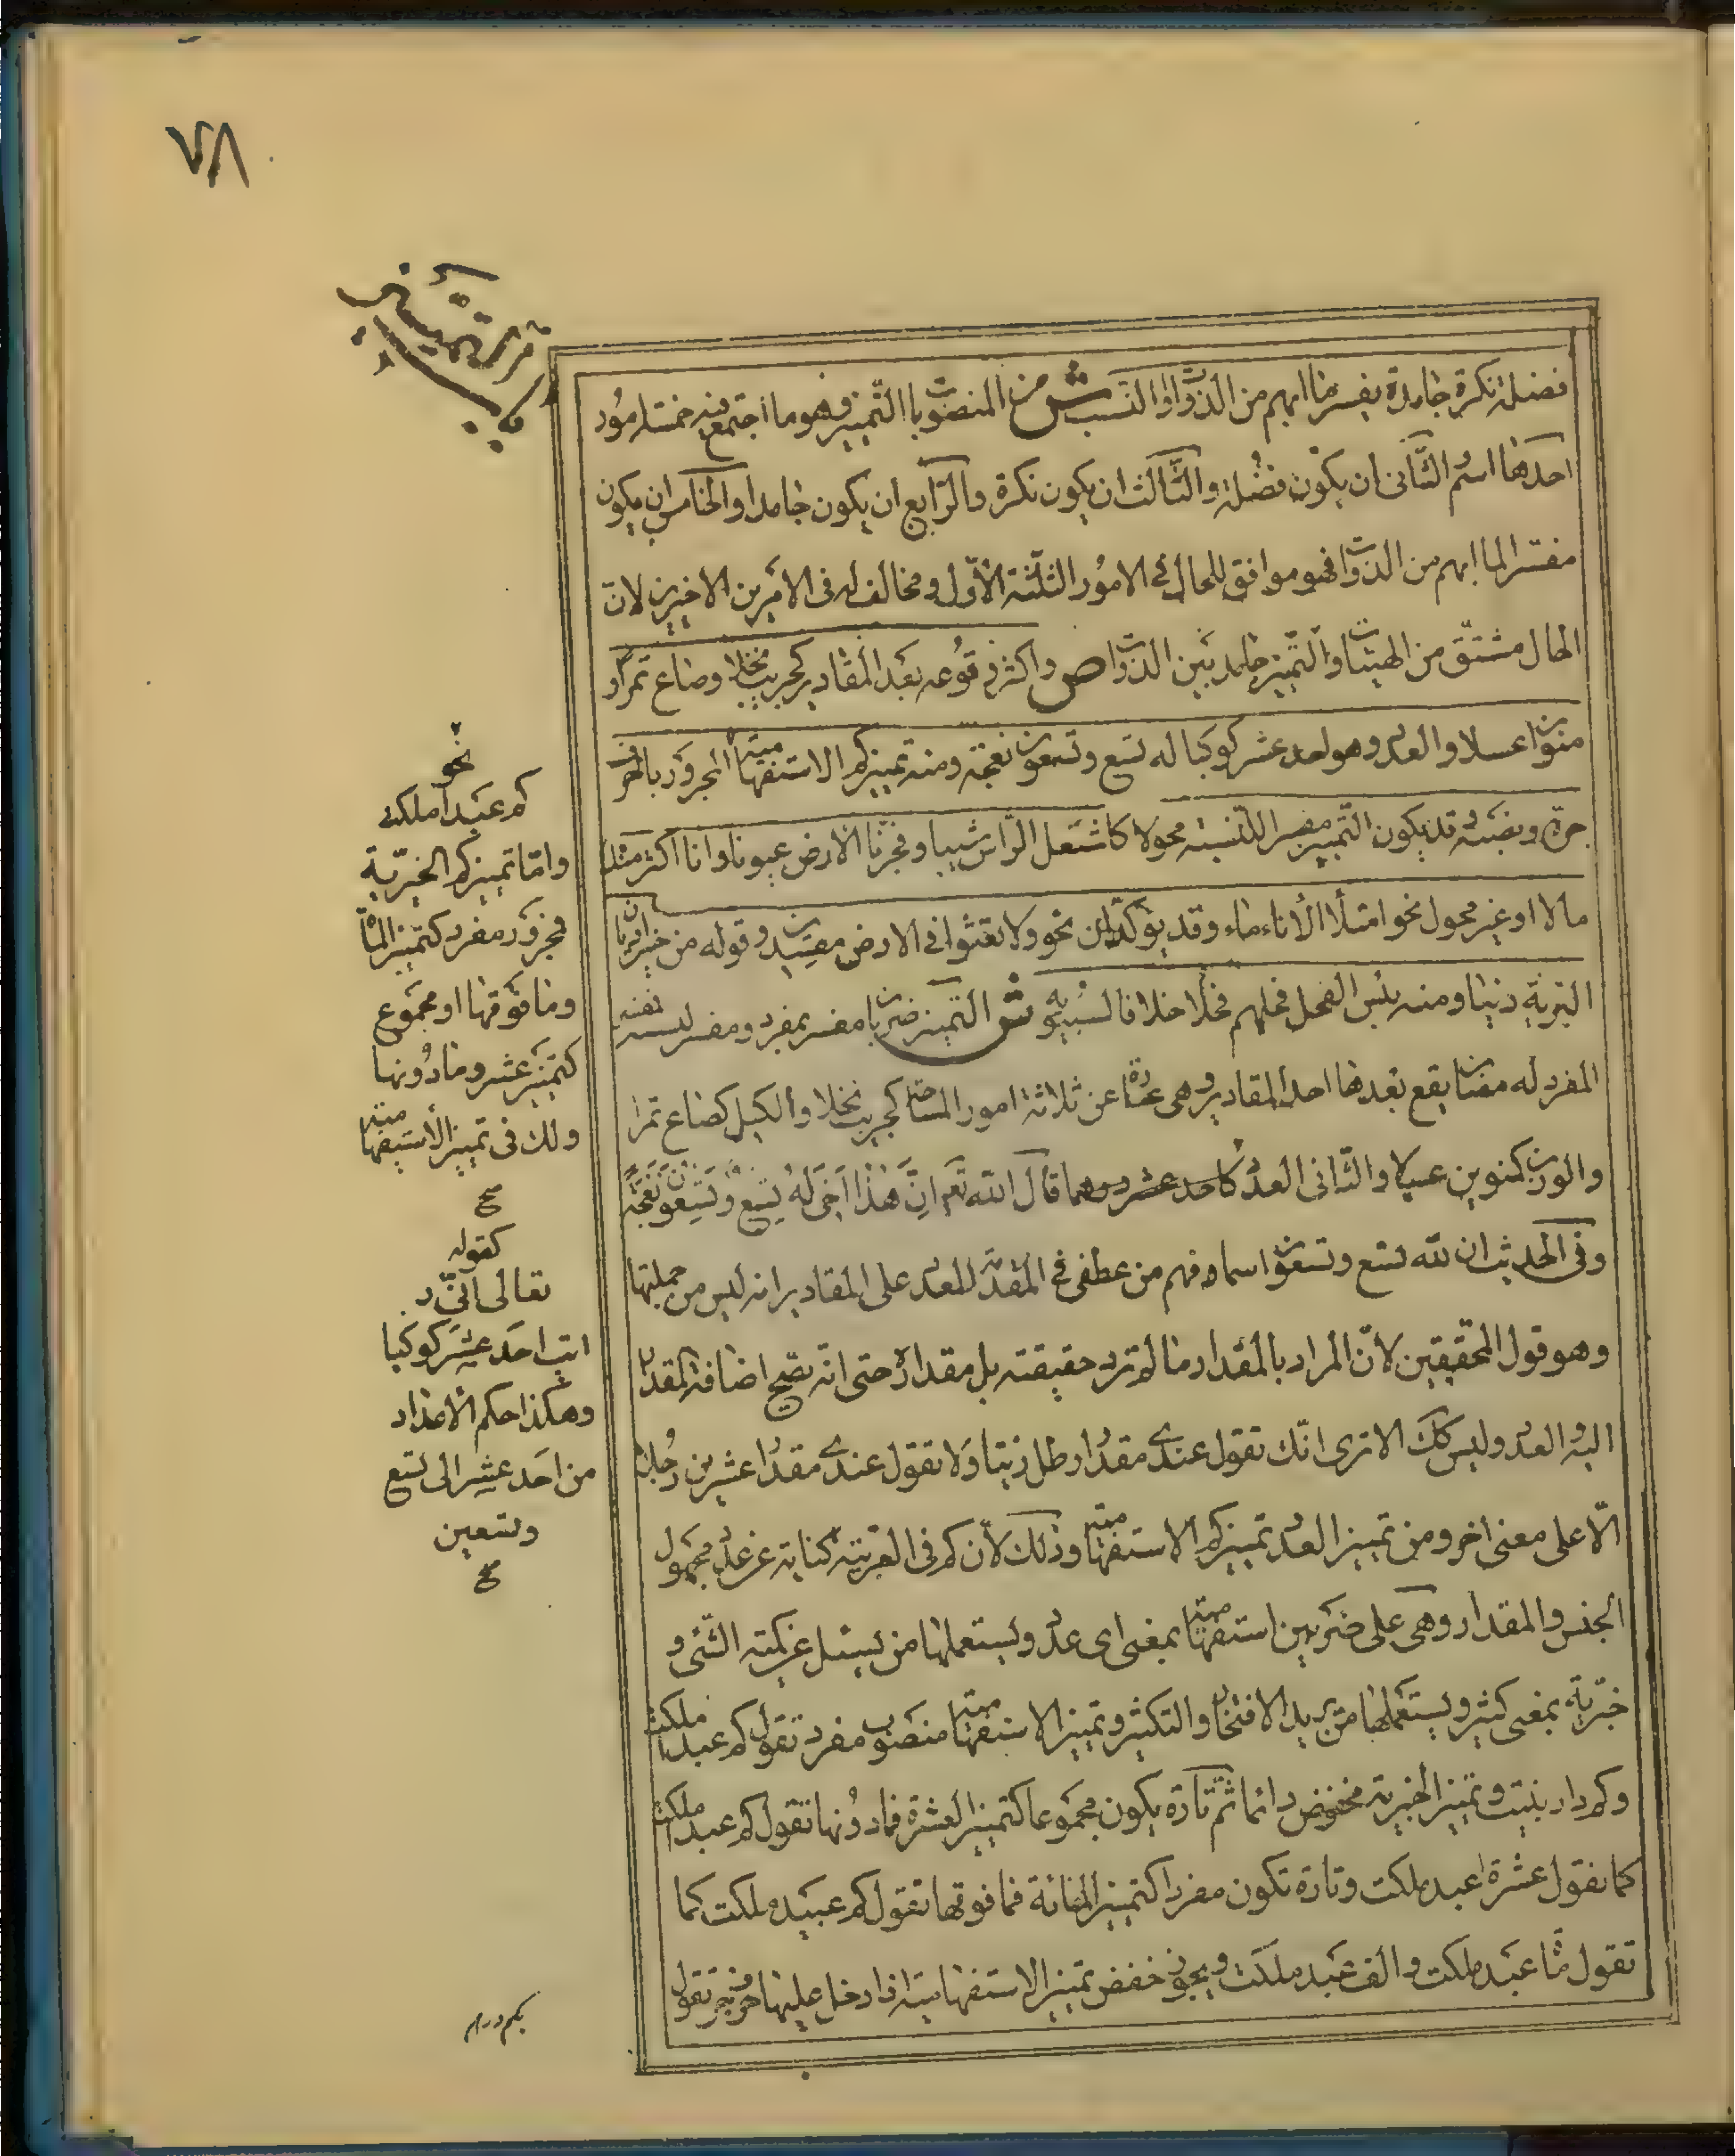 ٧٨
فضلة نكرة جامدة يفسر ما ابهم من الذوات او النسب ش من المنصوبات التمييز وهو ما اجتمع فيه خمسة امور
احدها اسم الثاني ان يكون فضلة والثالث ان يكون نكرة والرابع ان يكون جامدا والخامس ان يكون
مفسرا لما ابهم من الذوات فهو موافق للحال في الامور الثلثة الاول ومخالف له في الامرين الاخيرين لان
الحال مشتق من الهيئات والتمييز جامد يبين الذوات ص واكثر وقوعه بعد المقادير كجريب نخلا وصاع تمرا و
منوين عسلا والعدد وهو احد عشر كوكبا له تسع وتسعون نعجة ومنه تمييز كم الاستفهامية المجرور بالحرف
جره ونصبه وقد يكون التمييز مفسرا للنسبة محولا كاشتعل الراس شيبا وفجرنا الارض عيونا وانا اكثر منك
مالا او غير محول نحو امتلأ الاناء ماء وقد يؤكدان نحو ولا تعثوا في الارض مفسدين وقوله من خير اديان
البرية دينا ومنه بئس الفحل فحلهم فحلا خلافا لسيبويه ش التمييز ضربان مفسر بمفرد ومفسر لنسبة
المفرد له مضان يقع بعدها احدها المقادير وهي عبارة عن ثلاثة امور المساحة كجريب نخلا والكيل كصاع تمرا
والوزن كمنوين عسلا والثاني العدد كاحد عشر درهما قال الله تعم ان هذا اخي له تسع وتسعون نعجة
وفي الحديث ان لله تسع وتسعون اسما وفهم من عطفي في المقدمة للعدد على المقادير انه ليس من جملتها
وهو قول المحققين لان المراد بالمقدار ما لم ترد حقيقته بل مقداره حتى انه تصح اضافة المقدار
اليه والعدد وليس كك الا ترى انك تقول عندي مقدار رطل زيتا ولا تقول عندي مقدار عشرين رجلا
الا على معنى اخر ومن تمييز العدد تمييز كم الاستفهامية وذلك لان كم في العربية كناية عن عدد مجهول
الجنس والمقدار وهي على ضربين استفهامية بمعنى اي عدد ويستعملها من يسئل عن كمية الشئ و
خبرية بمعنى كثير ويستعملها من يريد الافتخار والتكثير وتمييز الاستفهامية منصوب مفرد تقول كم عبدا ملكت
وكم دار بنيت وتمييز الخبرية مخفوض دائما ثم تارة يكون مجموعا كتمييز العشرة فما دونها تقول كم عبد ملكت
كما تقول عشرة اعبد ملكت وتارة تكون مفردا كتمييز المائة فما فوقها تقول كم عبيد ملكت كما
تقول مائة عبد ملكت والف عبد ملكت ويجوز خفض تمييز الاستفهامية اذا دخل عليها حرف جر تقول
نحو
كم عبدا ملكت
واما تمييز كم الخبرية
فمجرور مفرد كتمييز المائة
وما فوقها او مجموع
كتمييز عشر وما دونها
ولك في تمييز الاستفهامية
صح
كقوله
تعالى اني ر
ايت احد عشر كوكبا
وهكذا حكم الاعداد
من احد عشر الى تسع
وتسعين
صح
بكم درهم